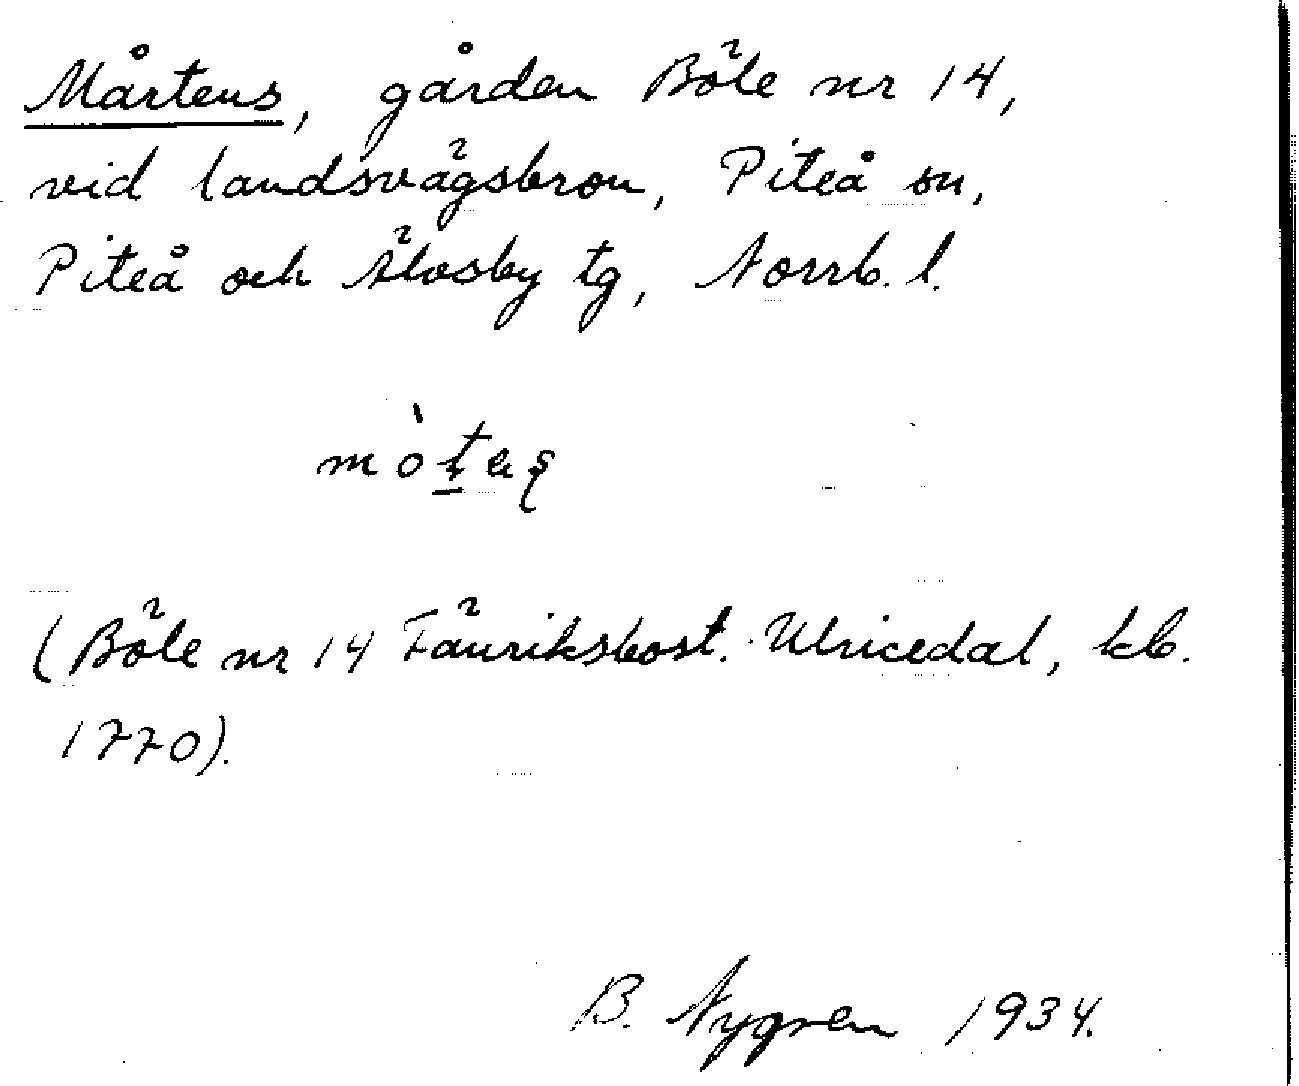 Mårtens, gården Böle nr 14,
vid landsvägsbron, Piteå sn,
Piteå och Älvsby tg, Norrb. l.
(Böle nr 14 Fänriksbost. Ulricedal, kb.
1770).
B. Nygren 1934.